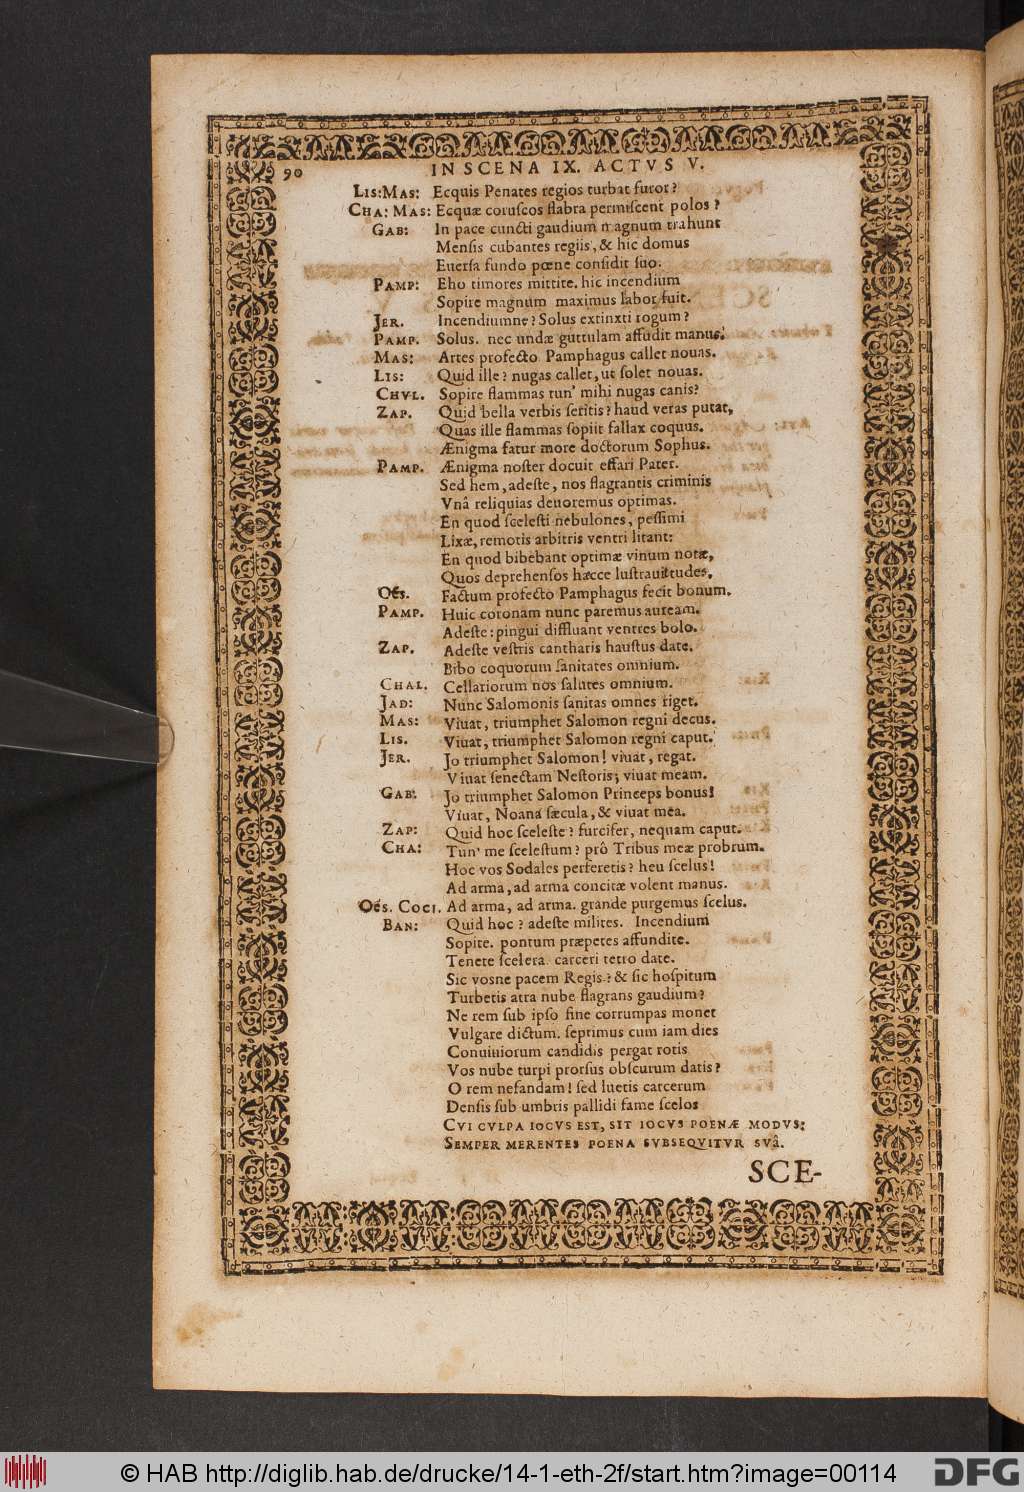 90 IN SCENA IX. ACTVS V.
LIS:MAS: Ecquis Penates regios turbat furor?
CHA: MAS: Ecquæ coruscos flabra permiscent polos?
GAB: In pace cuncti gaudium magnum trahunt
Mensis cubantes regiis, & hic domus
Eversa fundo pœne considit suo.
PAMP: Eho timores mittite. hic incendium
Sopire magnum maximus labor fuit.
JER. Incendiumne? Solus extinxti rogum?
PAMP. Solus. nec undæ guttulam affudit manus.
MAS: Artes profecto Pamphagus callet novas.
LIS: Quid ille? nugas callet, ut solet novas.
CHVL. Sopire flammas tun' mihi nugas canis?
ZAP. Quid bella verbis seritis? haud veras putat,
Quas ille flammas sopiit fallax coquus.
Ænigma fatur more doctorum Sophus.
PAMP. Ænigma noster docuit effari Pater.
Sed hem, adeste, nos flagrantis criminis
Vnâ reliquias devoremus optimas.
En quod scelesti nebulones, pessimi
Lixæ, remotis arbitris ventri litant:
En quod bibebant optimæ vinum notæ,
Quos deprehensos hæcce lustravit tudes.
Oẽs. Factum profecto Pamphagus fecit bonum.
PAMP. Huic coronam nunc paremus auream.
Adeste: pingui diffluant ventres bolo.
ZAP. Adeste vestris cantharis haustus date.
Bibo coquorum sanitates omnium.
CHAL. Cellariorum nos salutes omnium.
JAD: Nunc Salomonis sanitas omnes riget.
MAS: Vivat, triumphet Salomon regni decus.
LIS. Vivat, triumphet Salomon regni caput.
JER. Jo triumphet Salomon! vivat, regat.
Vivat senectam Nestoris; vivat meam.
GAB. Jo triumphet Salomon Princeps bonus!
Vivat, Noana sæcula, & vivat mea.
ZAP: Quid hoc sceleste? furcifer, nequam caput.
CHA: Tun' me scelestum? prô Tribus meæ probrum.
Hoc vos Sodales perferetis? heu scelus!
Ad arma, ad arma concitæ volent manus.
Oẽs. COCI. Ad arma, ad arma. grande purgemus scelus.
BAN: Quid hoc? adeste milites. Incendium
Sopite. pontum præpetes affundite.
Tenete scelera. carceri tetro date.
Sic vosne pacem Regis? & sic hospitum
Turbetis atra nube flagrans gaudium?
Ne rem sub ipso fine corrumpas monet
Vulgare dictum. septimus cum iam dies
Conviviorum candidis pergat rotis
Vos nube turpi prorsus obscurum datis?
O rem nefandam! sed luetis carcerum
Densis sub umbris pallidi fame scelos
CVI CVLPA IOCVS EST, SIT IOCVS POENÆ MODVS:
SEMPER MERENTES POENA SVBSEQVITVR SVÂ.
SCE-
© HAB http://diglib.hab.de/drucke/14-1-eth-2f/start.htm?image=00114
DFG